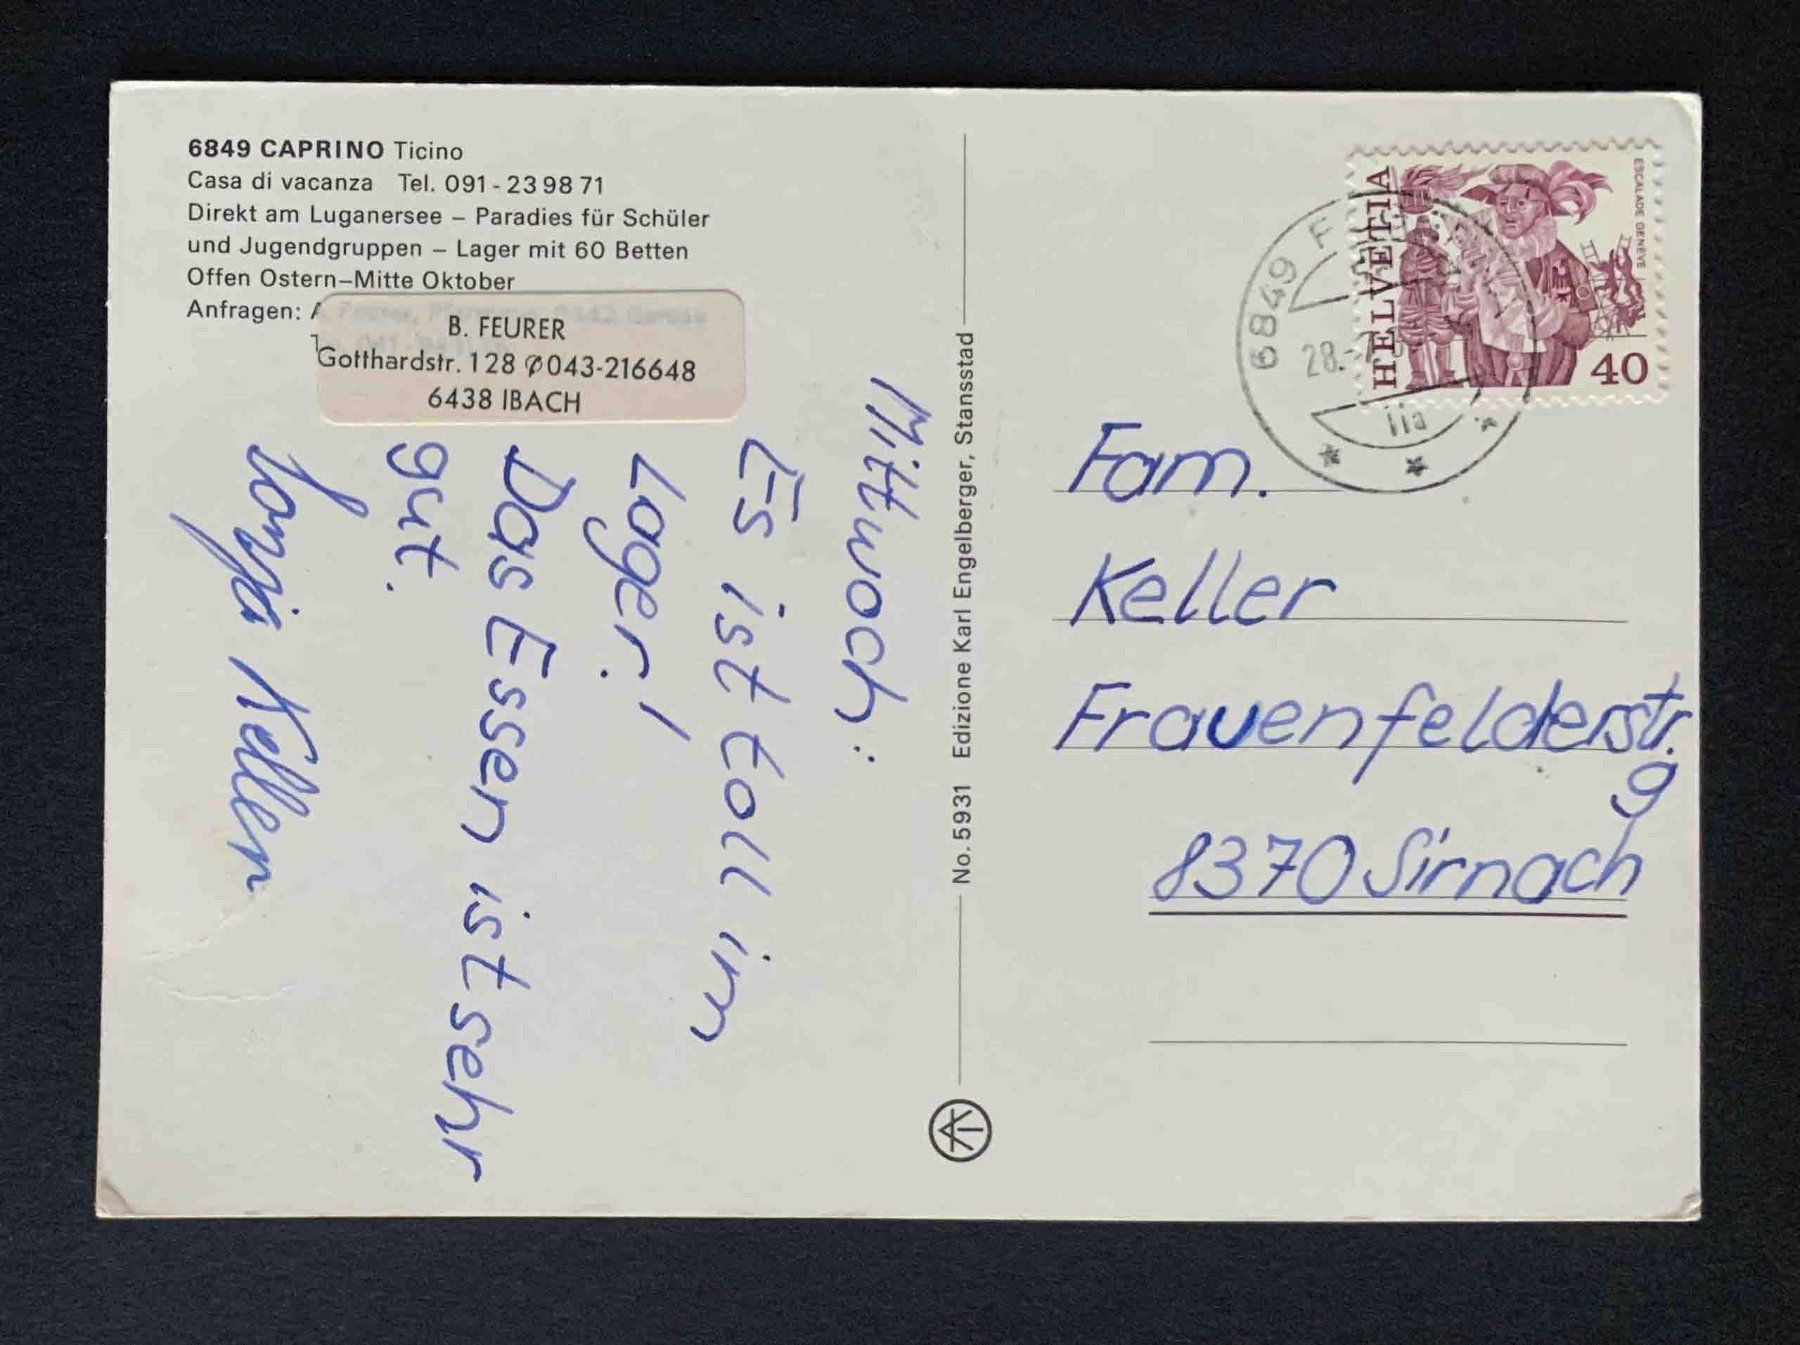 6849 CAPRINO Ticino
Casa di vacanza Tel. 091 - 23 98 71
Direkt am Luganersee – Paradies für Schüler
und Jugendgruppen – Lager mit 60 Betten
Offen Ostern–Mitte Oktober
Anfragen:
B. FEURER
Gotthardstr. 128 ✆ 043-216648
6438 IBACH
Mittwoch:
Es ist toll in
Lager!
Das Essen ist sehr
gut.
Sonja Keller
No. 5931 Edizione Karl Engelberger, Stansstad
HELVETIA
ESCALADE GENÈVE
40
6849
28.
Fam.
Keller
Frauenfelderstr.
9
8370 Sirnach